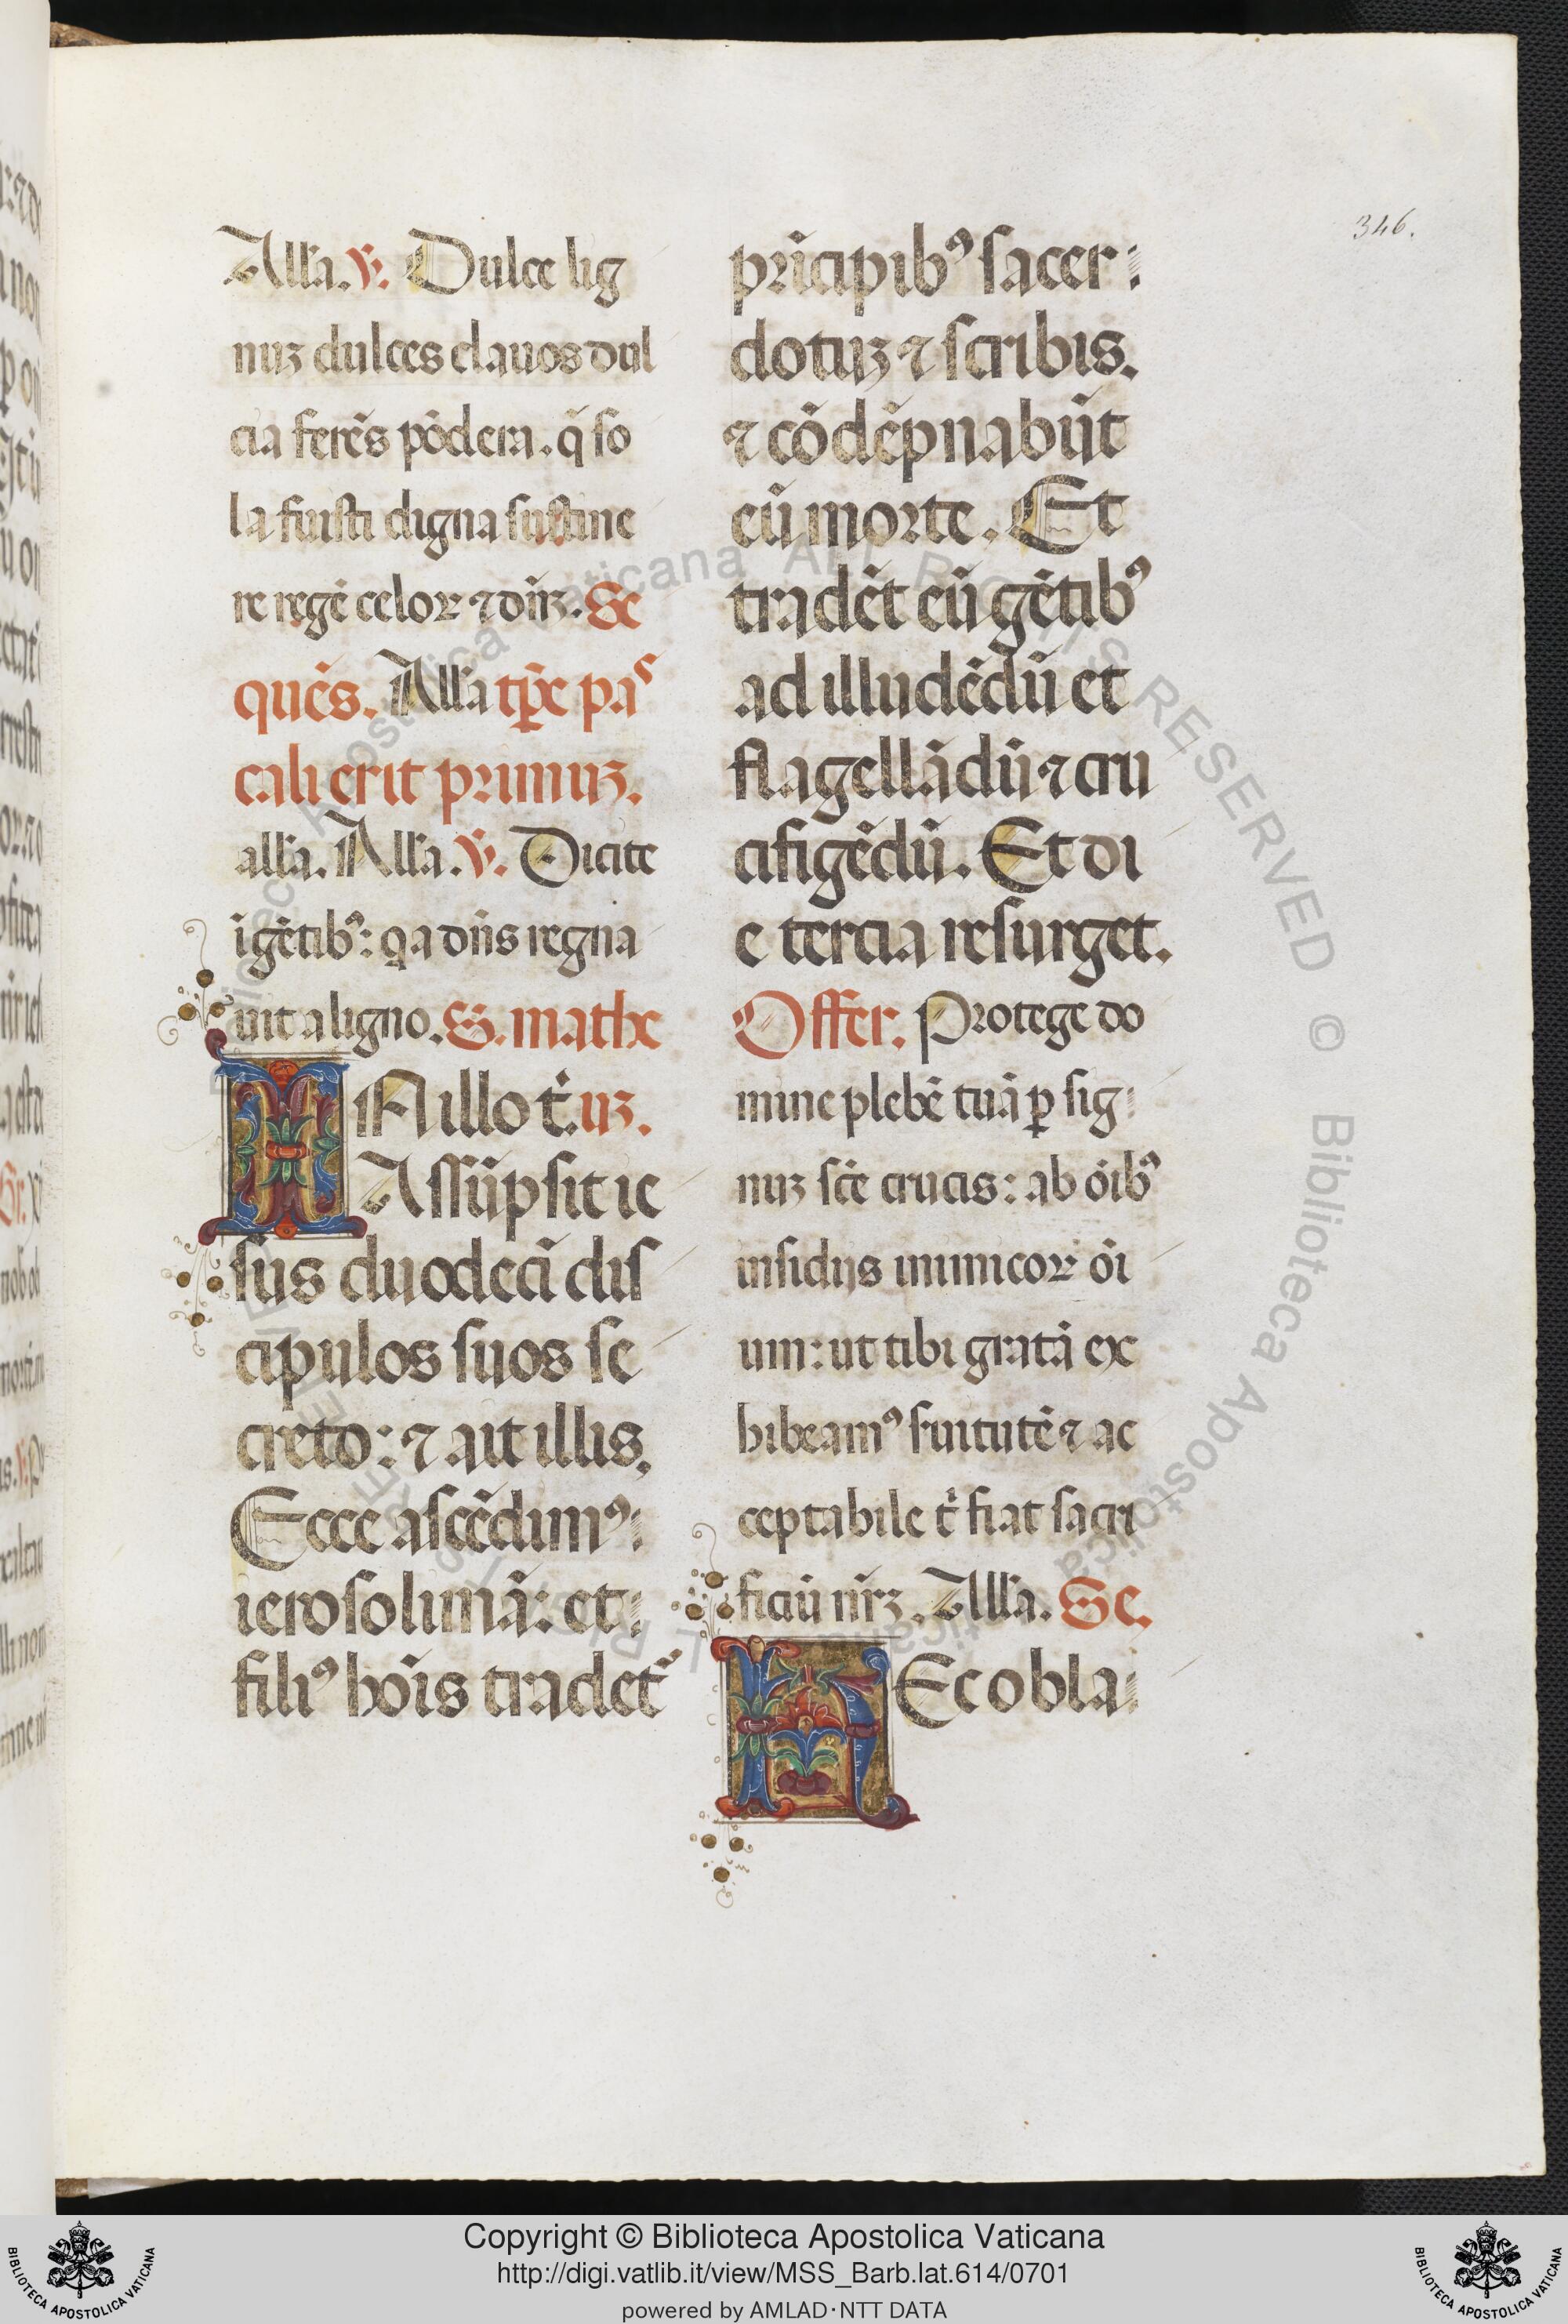 346.
Allꝰa. ℣. Dulce lig
nuʒ dulces clauos dul
cia ferēs pōdera. q̄ so
la fuisti digna sustine
re regē celoꝝ ⁊ dn̄ʒ. Se
quēs. All'a tp̄e pas
cali erit primuʒ.
all'a. All'a. ℣. Dicite
ī gētibꝰ: qa dn̄s regna
uit a ligno. S. mathe
IN illo t̄. uʒ.
Assūpsit ie
sus duodecī dis
cipulos suos se
creto: ⁊ ait illis.
Ecce ascēdimꝰ:
ierosolimā: et
filiꝰ hoīs tradet᷑
prīcipibꝰ sacer
dotuʒ ⁊ scribis.
⁊ cōdēpnabūt
eū morte. Et
tradēt eū gētibꝰ
ad illudēdū et
flagellādū ⁊ cru
cifigēdū. Et di
e tercia resurget.
Offer. Protege do
mine plebē tuā ꝑ sig
nuʒ sc̄e crucis: ab oībꝰ
insidijs inimicoꝝ oī
um: ut tibi gratā ex
hibeamꝰ fuitutē ⁊ ac
ceptabile t̄ fiat sacri
ficiū nr̄ʒ. All'a. Se.
HEc obla
Copyright © Biblioteca Apostolica Vaticana
http://digi.vatlib.it/view/MSS_Barb.lat.614/0701
powered by AMLAD·NTT DATA
BIBLIOTECA APOSTOLICA VATICANA
BIBLIOTECA APOSTOLICA VATICANA